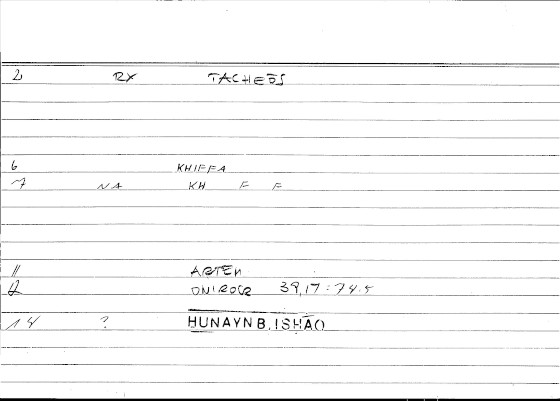 2 RX TACHEŌS
6 KHIFFA
7 NA KH F F
11 ARTEM
12 ONIROCR 39,17 : 74.5
14 ? HUNAYN B. ISḤĀQ